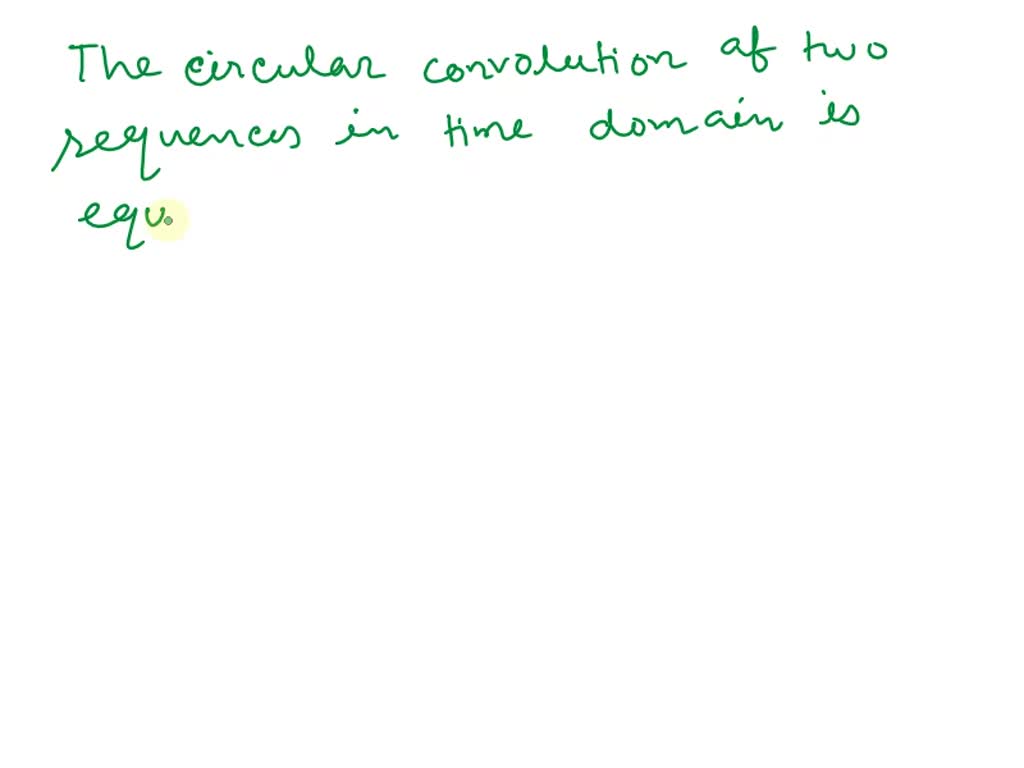 The circular convolution of two
sequences in time domain is
equ